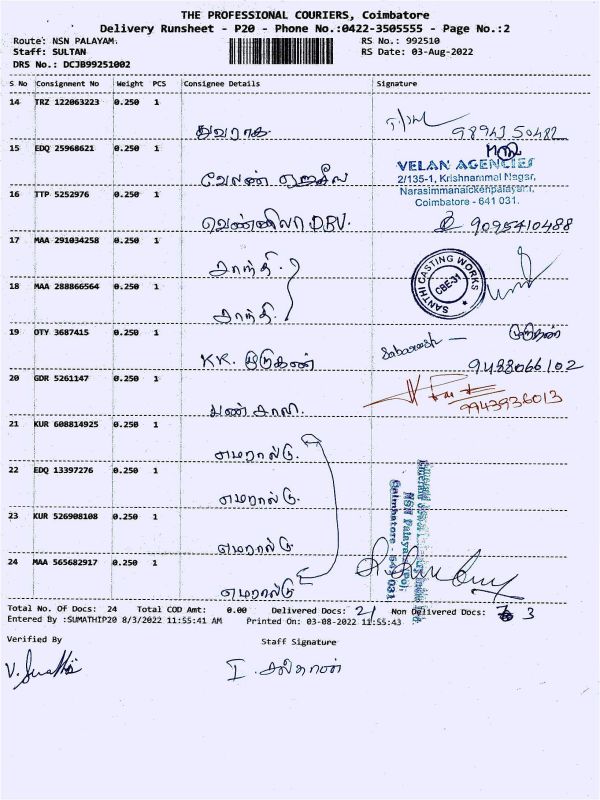 THE PROFESSIONAL COURIERS, Coimbatore
Delivery Runsheet - P20 - Phone No.:0422-3505555 - Page No.:2
Route: NSN PALAYAM. RS No.: 992510
Staff: SULTAN RS Date: 03-Aug-2022
DRS No.: DCJB99251002
S No Consignment No Weight PCS Consignee Details Signature
14 TRZ 122063223 0.250 1
9894150482
15 EDQ 25968621 0.250 1
வேலன்
VELAN AGENCIES
2/135-1, Krishnammal Nagar,
Narasimmanaickenpalayam,
Coimbatore - 641 031.
16 TTP 5252976 0.250 1
வெண்ணிலா DBV. 9095410488
17 MAA 291034258 0.250 1
சாந்தி.
SANTHI CASTING WORKS
CBE-31
18 MAA 288866564 0.250 1
சாந்தி.
19 OTY 3687415 0.250 1
KK. முருகன் 9488066102
20 GDR 5261147 0.250 1
9943936013
21 KUR 608814925 0.250 1
எமரால்டு.
22 EDQ 13397276 0.250 1
எமரால்டு.
23 KUR 526908108 0.250 1
எமரால்டு.
24 MAA 565682917 0.250 1
எமரால்டு
NSN Palayam
Coimbatore - 641 031
Total No. Of Docs: 24 Total COD Amt: 0.00 Delivered Docs: 21 Non Delivered Docs: 3
Entered By :SUMATHIP20 8/3/2022 11:55:41 AM Printed On: 03-08-2022 11:55:43
Verified By Staff Signature
I. சுல்தான்